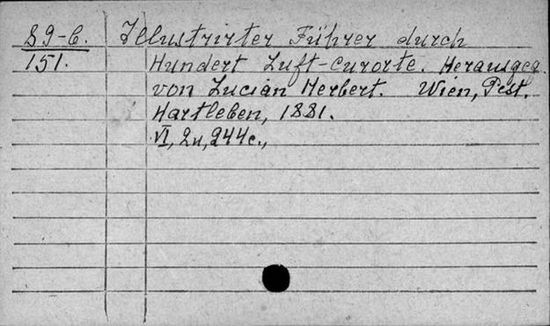 89-C. Illustrirter Führer durch
151. Hundert Luft-Curorte. Herausgeg.
von Lucian Herbert. Wien, Pest.
Hartleben, 1881.
VI, 2н, 244с.,